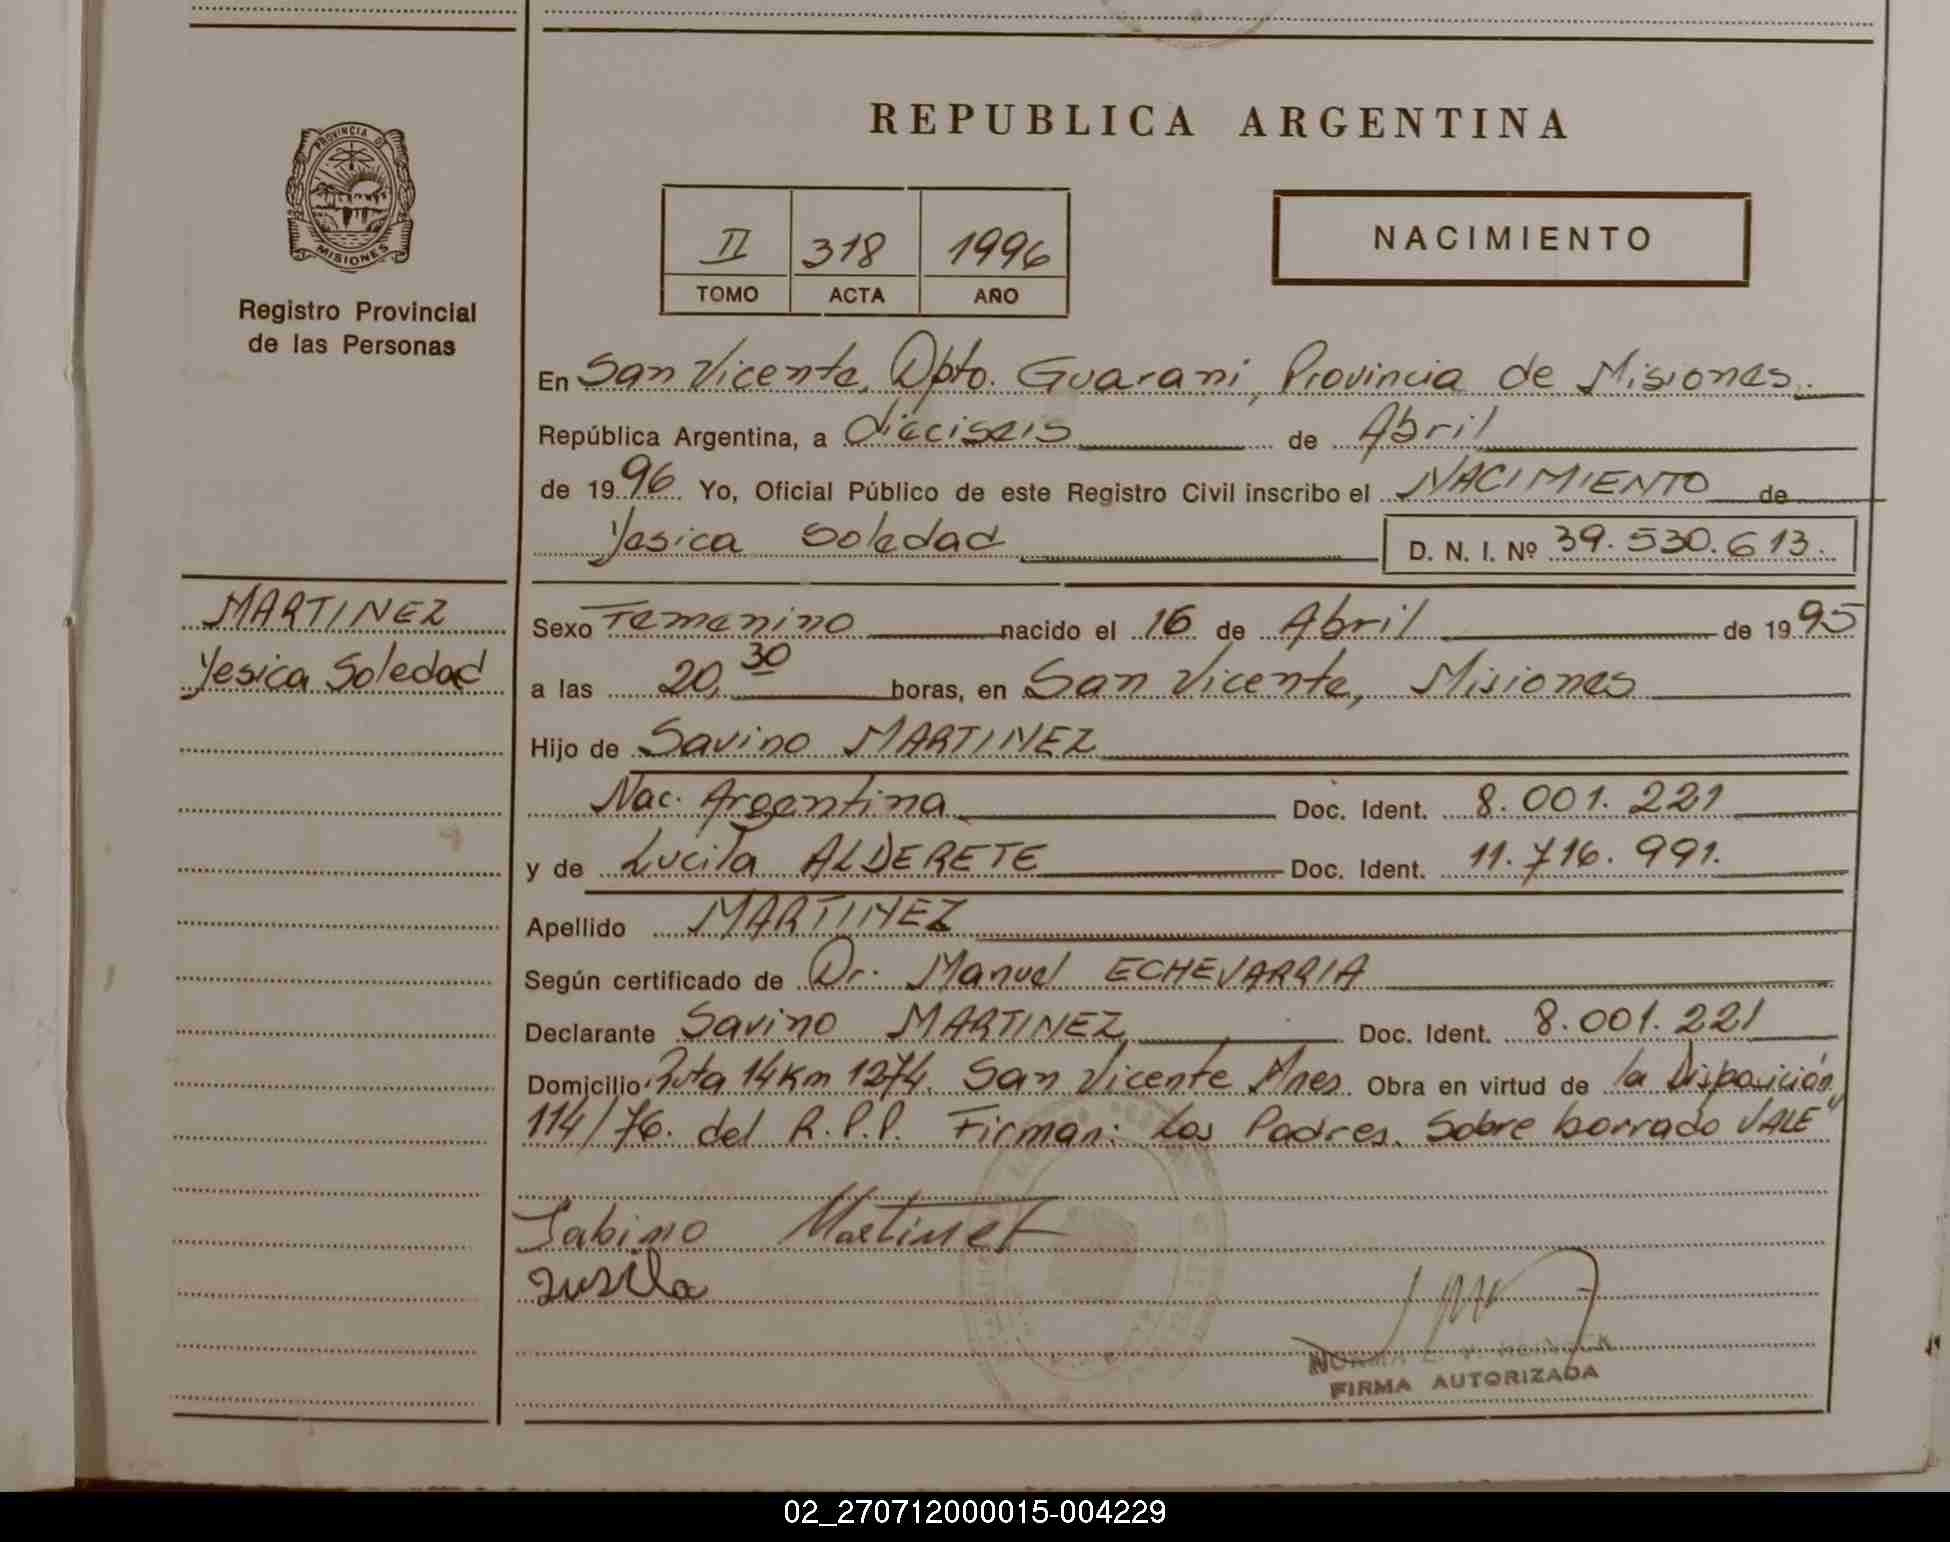 REPUBLICA ARGENTINA
PROVINCIA DE
MISIONES
Registro Provincial
de las Personas
II 318 1996
TOMO ACTA AÑO
NACIMIENTO
En San Vicente, Dpto. Guarani, Provincia de Misiones.
República Argentina, a dieciseis de Abril
de 1996 Yo, Oficial Público de este Registro Civil inscribo el NACIMIENTO de
Yesica Soledad D. N. I. Nº 39.530.613.
MARTINEZ
Yesica Soledad
Sexo Femenino nacido el 16 de Abril de 1995
a las 20,30 horas, en San Vicente, Misiones
Hijo de Savino MARTINEZ
Nac. Argentina Doc. Ident. 8.001.221
y de Lucila ALDERETE Doc. Ident. 11.716.991.
Apellido MARTINEZ
Según certificado de Dr. Manuel ECHEVARRIA
Declarante Savino MARTINEZ Doc. Ident. 8.001.221
Domicilio Ruta 14 Km 1274. San Vicente Mnes. Obra en virtud de la Disposición
114/76. del R.P.P. Firman: Los Padres. Sobre borrado VALE"
Sabino Martinez
Lusila
NORMA
FIRMA AUTORIZADA
02_270712000015-004229